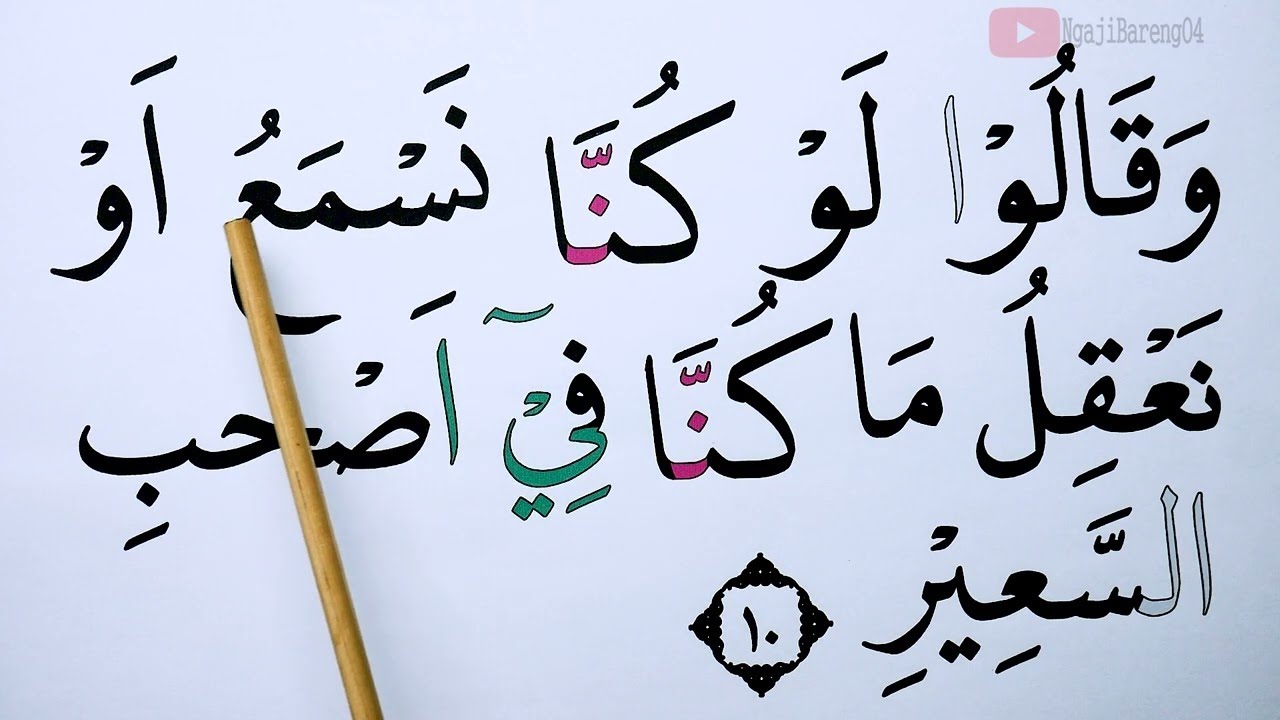 NgajiBareng04
وَقَالُوْا لَوْ كُنَّا نَسْمَعُ اَوْ
نَعْقِلُ مَا كُنَّا فِيْٓ اَصْحٰبِ
السَّعِيْرِ ١٠